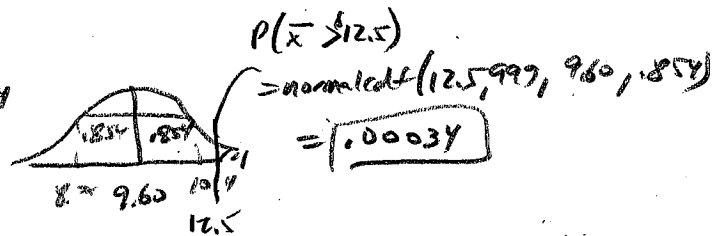 P(x̄ > 12.5)
= normalcdf(12.5, 999, 9.60, .854)
= .00034
.854 .854
9.60
12.5